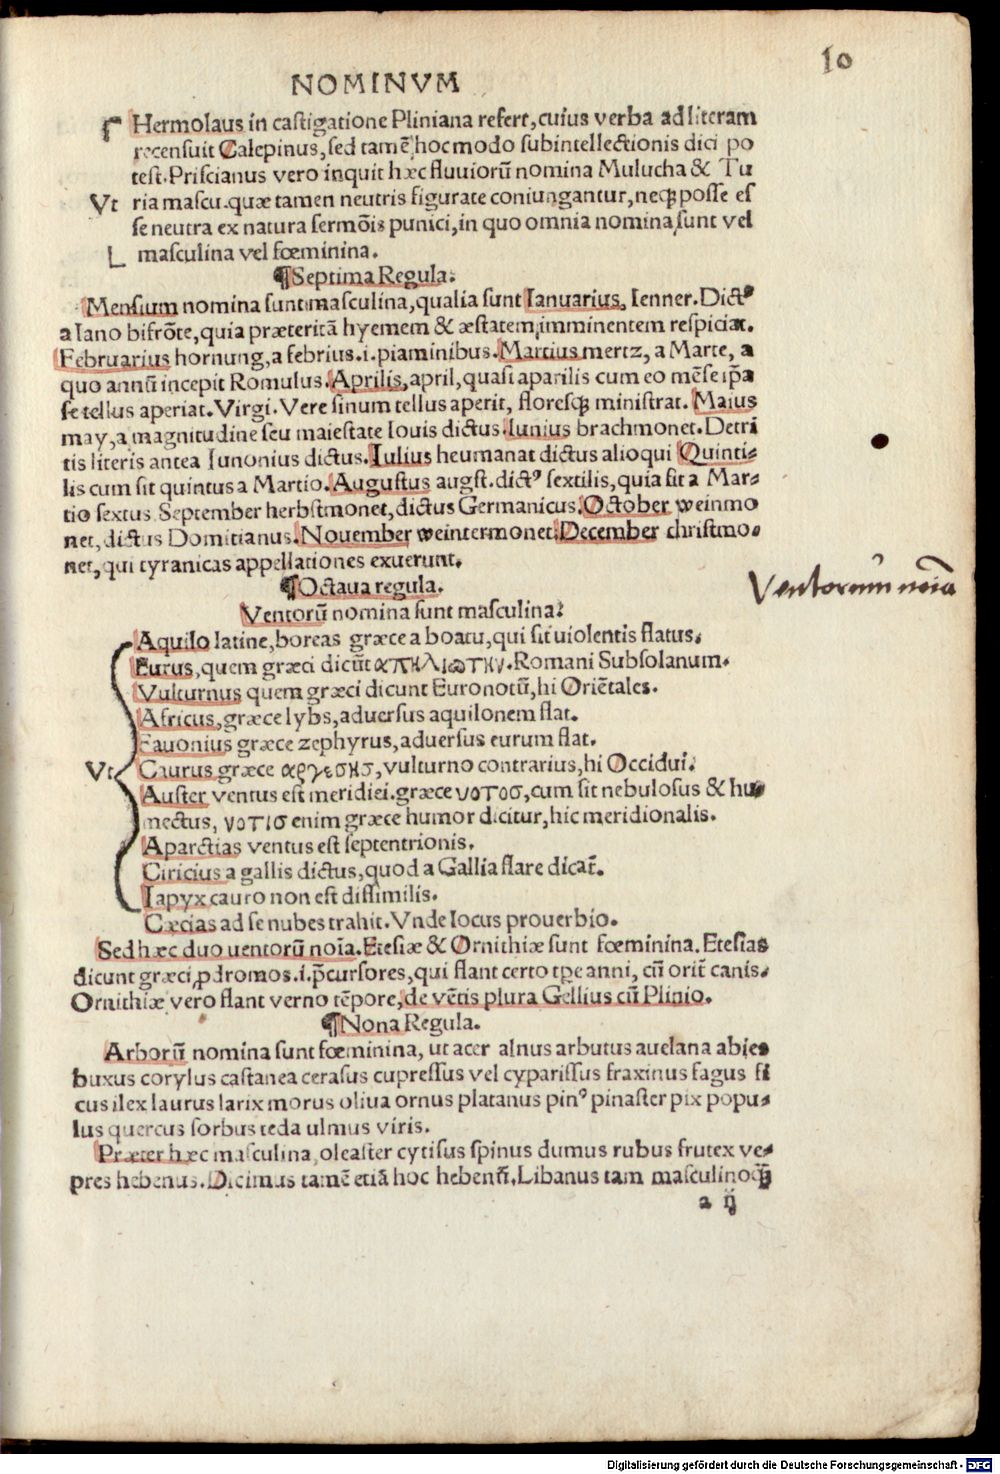 10
NOMINVM
Hermolaus in castigatione Pliniana refert, cuius verba ad literam
recensuit Calepinus, sed tamē hoc modo subintellectionis dici po
test. Priscianus vero inquit hæc fluuiorū nomina Mulucha & Tu
Vt ria mascu. quæ tamen neutris figurate coniungantur, neqꝫ posse es
se neutra ex natura sermōis punici, in quo omnia nomina sunt vel
masculina vel fœminina.
¶Septima Regula.
Mensium nomina sunt masculina, qualia sunt Ianuarius, Ienner. Dictꝰ
a Iano bifrōte, quia præteritā hyemem & æstatem imminentem respiciat.
Februarius hornung, a februis .i. piaminibus. Martius mertz, a Marte, a
quo annū incepit Romulus. Aprilis, april, quasi aparilis cum eo mēse ip̄a
se tellus aperiat. Virgi. Vere sinum tellus aperit, floresqꝫ ministrat. Maius
may, a magnitudine seu maiestate Iouis dictus. Iunius brachmonet. Detri
tis literis antea Iunonius dictus. Iulius heumanat dictus alioqui Quinti-
lis cum sit quintus a Martio. Augustus augst. dictꝰ sextilis, quia sit a Mar-
tio sextus September herbstmonet, dictus Germanicus. October weinmo
net, dictus Domitianus. Nouember weintermonet. December christmo-
net, qui tyranicas appellationes exuerunt.
¶Octaua regula.
Ventorum noīa
Ventorū nomina sunt masculina:
Aquilo latine, boreas græce a boatu, qui sit uiolentis flatus.
Eurus, quem græci dicūt απηλιωτην. Romani Subsolanum.
Vulturnus quem græci dicunt Euronotū, hi Oriētales.
Africus, græce lybs, aduersus aquilonem flat.
Fauonius græce zephyrus, aduersus eurum flat.
Vt Caurus græce αργεσησ, vulturno contrarius, hi Occidui.
Auster ventus est meridiei. græce νοτοσ, cum sit nebulosus & hu-
mectus, νοτισ enim græce humor dicitur, hic meridionalis.
Aparctias ventus est septentrionis.
Ciricius a gallis dictus, quod a Gallia flare dicat̄.
Iapyx cauro non est dissimilis.
Cæcias ad se nubes trahit. Vnde Iocus prouerbio.
Sed hæc duo uentorū noīa. Etesiæ & Ornithiæ sunt fœminina. Etesias
dicunt græci ꝓdromos .i. p̄cursores, qui flant certo tp̄e anni, cū orit̄ canis.
Ornithiæ vero flant verno tēpore, de vētis plura Gellius cū Plinio.
¶Nona Regula.
Arborū nomina sunt fœminina, ut acer alnus arbutus auelana abies
buxus corylus castanea cerasus cupressus vel cyparissus fraxinus fagus fi
cus ilex laurus larix morus oliua ornus platanus pinꝰ pinaster pix popu-
lus quercus sorbus teda ulmus viris.
Præter hæc masculina, oleaster cytisus spinus dumus rubus frutex ve-
pres hebenus. Dicimus tamē etiā hoc hebenū. Libanus tam masculinoqꝫ
a ij
Digitalisierung gefördert durch die Deutsche Forschungsgemeinschaft - DFG